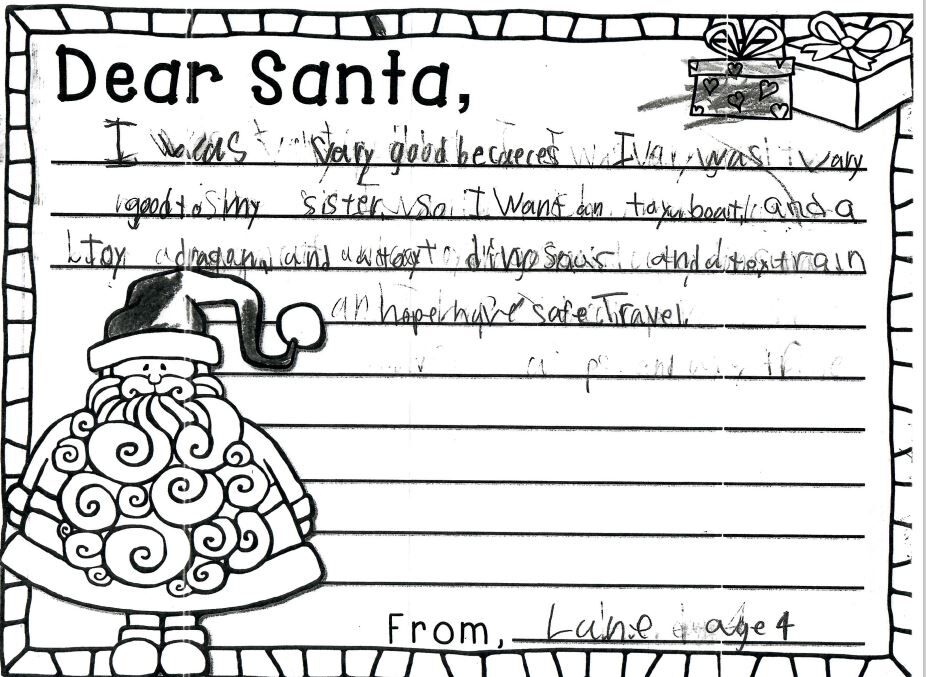 Dear Santa,
I was vary good becaeces I was vary
good to my sister so I Want an toy boat and a
toy dragan and a toy dinosaur and a toy train
an hope have safe Travel.
From, Lane age 4